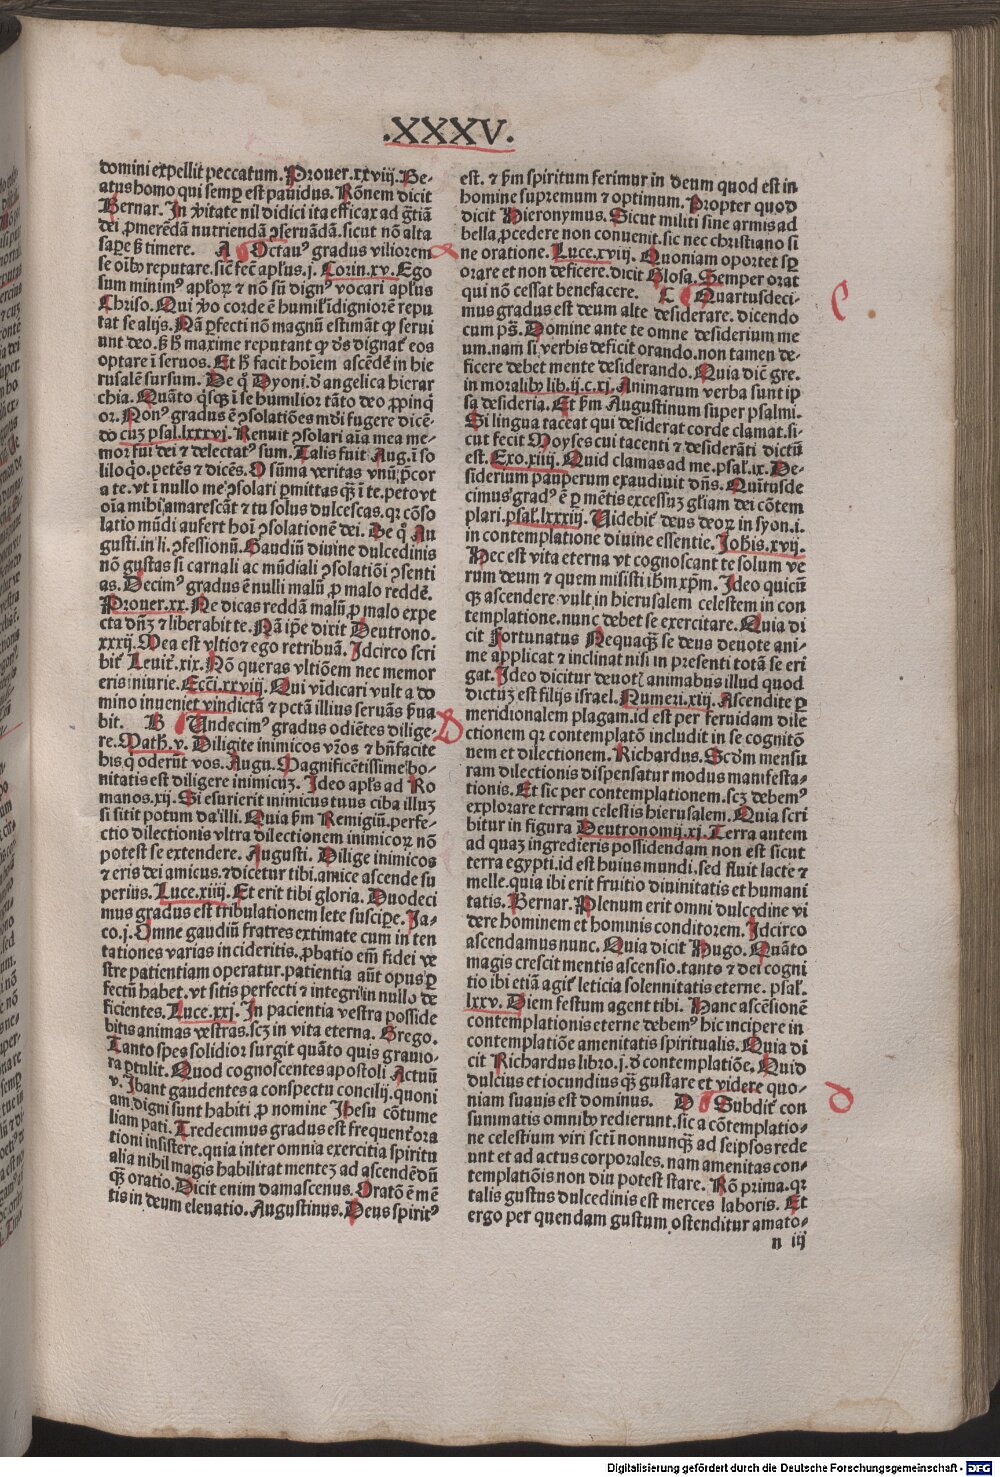 .XXXV.
domini expellit peccatum. Prouer.xxviij. Be-
atus homo qui semꝑ est pauidus. Rōnem dicit
Bernar. In ꝟitate nil didici ita efficax ad gr̄tiā
dei ꝓmerēdā nutriendā ꝯseruādā. sicut nō alta
saꝑe ſꝫ timere. A Octauꝰ gradus viliorem
se oībꝰ reputare. sic̄ fec̄ apłus .j. Corin.xv. Ego
sum minimꝰ apłoꝝ ⁊ nō sū dignꝰ vocari apłus
Christo. Qui ꝟo corde ē humił īdigniorē repu
tat se alijs. Nā ꝑfecti nō magnū estimāt ꝙ serui
unt deo. ſꝫ hͦ maxime reputant ꝙ dn̄s dignat᷑ eos
optare ī seruos. Et hͦ facit hoīem ascēdē in hie
rusalē sursum. De q̄ Dyoni. ꝺ angelica hierar
chia. Quāto q̄sqꝫ ī se humilior tāto deo ꝓpinq̄
or. Nonꝰ gradus ē ꝯsolatiōes mūdi fugere dicē-
do cuꝫ psal.lxxxvj. Renuit ꝯsolari aīa mea me-
mor fui dei ⁊ delectatꝰ sum. Talis fuit Aug. ī so
liloq̄o. petēs ⁊ dicēs. O sūma veritas vnū p̄cor
a te. vt ī nullo me ꝯsolari ꝑmittas qꝫ̄ ī te. peto vt
oīa mihi amarescāt ⁊ tu solus dulcescas. qꝛ cōso
latio mūdi aufert hoī ꝯsolationē dei. De q̄ Au
gusti. in li. ꝯfessionū. Gaudiū diuine dulcedinis
nō gustas si carnali ac mūdiali ꝯsolatiōi ꝯsenti
as. Decimꝰ gradus ē nulli malū ꝓ malo reddē.
Prouer.xx. Ne dicas reddā malū ꝓ malo expe
cta dn̄ꝫ ⁊ liberabit te. Nā ip̄e dixit Deutrono.
xxxij. Mea est vltio ⁊ ego retribuā. Idcirco scri
bit᷑ Leuit᷑.xix. Nō queras vltiōem nec memor
eris iniurie. Ecci.xxviij. Qui vīdicari vult a do
mino inueniet vindictā ⁊ petā illius seruās ẜua
bit. B Undecimꝰ gradus odiētes dilige-
re. Math̄.v. Diligite inimicos vr̄os ⁊ bn̄facite
his q̄ oderūt vos. Augu. Magnificētissime bo-
nitatis est diligere inimicuꝫ. Ideo apłs ad Ro
manos.xij. Si esurierit inimicus tuus ciba illuꝫ
si sitit potum da illi. Quia ẜm Remigiū. perfe-
ctio dilectionis vltra dilectionem inimicoꝝ nō
potest se extendere. Augusti. Dilige inimicos
⁊ eris dei amicus. ⁊ dicetur tibi. amice ascende su
perius. Luce.xiiij. Et erit tibi gloria. Duodeci
mus gradus est tribulationem lete susciꝑe. Ja-
co.j. Omne gaudiū fratres extimate cum in ten
tationes varias incideritis. ꝓbatio em̄ fidei ve
stre patientiam operatur. patientia aūt opus ꝑ
fectū habet. vt sitis perfecti ⁊ integri in nullo de
ficientes. Luce.xxj. In pacientia vestra posside
bitis animas vestras. scꝫ in vita eterna. Grego.
Tanto spes solidior surgit quāto quis grauio-
ra ꝑtulit. Quod cognoscentes apostoli Actuū
v. Ibant gaudentes a conspectu concilij. quoni
am digni sunt habiti ꝓ nomine Jhesu cōtume
liam pati. Tredecimus gradus est frequent᷑ ora
tioni insistere. quia inter omnia exercitia spiritu
alia nihil magis habilitat menteꝫ ad ascendēdū
qꝫ̄ oratio. Dicit enim damascenus. Oratō ē mē
tis in deum eleuatio. Augustinus. Deus spiritꝰ
est. ⁊ ẜm spiritum ferimur in deum quod est in
homine supremum ⁊ optimum. Propter quod
dicit Hieronymus. Sicut militi sine armis ad
bella ꝓcedere non conuenit. sic nec christiano si
ne oratione. Luce.xviij. Quoniam oportet sꝑ
orare et non deficere. dicit Glosa. Semper orat
qui nōn cessat benefacere. C Quartusdeci-
mus gradus est deum alte desiderare. dicendo
cum ps̄. Domine ante te omne desiderium me
um. nam si verbis deficit orando. non tamen de-
ficere debet mente desiderando. Quia dic̄ gre.
in moralibꝰ lib.ij.c.xj. Animarum verba sunt ip
sa desideria. Et ẜm Augustinum super psalmi.
Si lingua taceat qui desiderat corde clamat. si-
cut fecit Moyses cui tacenti ⁊ desiderāti dictū
est. Exo.xiiij. Quid clamas ad me. psał.ix. De-
siderium pauperum exaudiuit dn̄s. Quītusde
cimus gradꝰ ē ꝑ mētis excessuꝫ gl̄iam dei cōtem
plari. psał.lxxxiij. Uidebit᷑ deus deoꝝ in syon .i.
in contemplatione diuine essentie. Joh̄is.xvij.
Hec est vita eterna vt cognoscant te solum ve
rum deum ⁊ quem misisti ih̄m xp̄m. Ideo quicū
qꝫ ascendere vult in hierusalem celestem in con
templatione. nunc debet se exercitare. Quia di
cit Fortunatus Nequaqꝫ̄ se deus deuote ani-
me applicat ⁊ inclinat nisi in presenti totā se eri
gat. Ideo dicitur deuotꝭ animabus illud quod
dictuꝫ est filijs israel. Numeri.xiij. Ascendite ꝑ
meridionalem plagam. id est per feruidam dile
ctionem qꝛ contemplatō includit in se cognitō
nem et dilectionem. Richardus. Scꝺm mensu
ram dilectionis dispensatur modus manifesta-
tionis. Et sic per contemplationem. scꝫ debemꝰ
explorare terram celestis hierusalem. Quia scri
bitur in figura Deutronomij.xj. Terra autem
ad quaꝫ ingredieris possidendam non est sicut
terra egypti. id est huius mundi. sed fluit lacte ⁊
melle. quia ibi erit fruitio diuinitatis et humani
tatis. Bernar. Plenum erit omni dulcedine vi
dere hominem et hominis conditorem. Idcirco
ascendamus nunc. Quia dicit Hugo. Quāto
magis crescit mentis ascensio. tanto ⁊ dei cogni
tio ibi etiā agit᷑ leticia solennitatis eterne. psał.
lxxv. Diem festum agent tibi. Hanc ascēsionē
contemplationis eterne debemꝰ hic incipere in
contemplatiōe amenitatis spiritualis. Quia di
cit Richardus libro.j. ꝺ contemplatiōe. Quid
dulcius et iocundius qꝫ̄ gustare et videre quo-
niam suauis est dominus. D Subdit᷑ con
summatis omnibꝰ redierunt. sic a cōtemplatio-
ne celestium viri sctī nonnunqꝫ̄ ad seipsos rede
unt et ad actus corporales. nam amenitas con-
templatiōis non diu potest stare. Rō prima. qꝛ
talis gustus dulcedinis est merces laboris. Et
ergo per quendam gustum ostenditur amato-
n iij
Digitalisierung gefördert durch die Deutsche Forschungsgemeinschaft - DFG